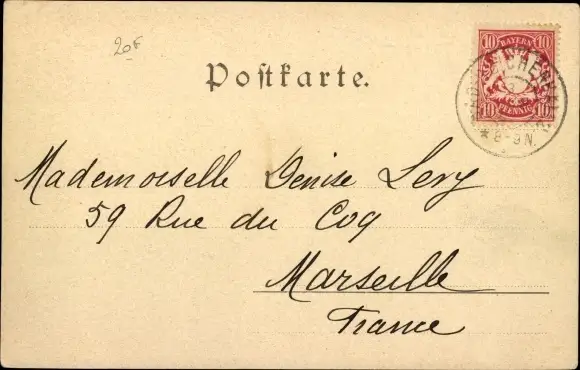 20F
Postkarte.
10 BAYERN 10
10 PFENNIG 10
* 8-9 N.
Mademoiselle Denise Levy
59 Rue du Coq
Marseille
France